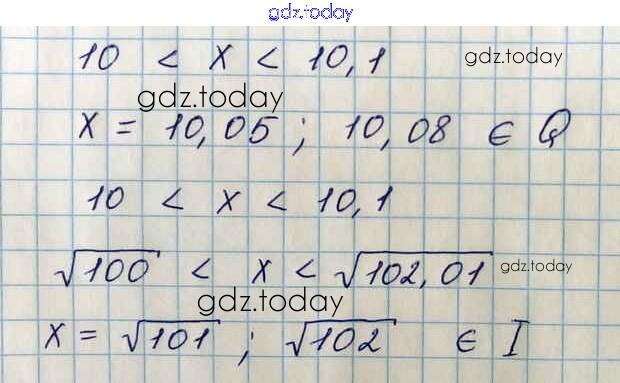 gdz.today
10 < x < 10,1 gdz.today
gdz.today
x = 10,05 ; 10,08 ∈ Q
10 < x < 10,1
√100 < x < √102,01 gdz.today
gdz.today
x = √101 ; √102 ∈ I